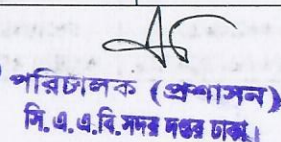 পরিচালক (প্রশাসন)
সি. এ. এ.বি. সদর দপ্তর ঢাকা।